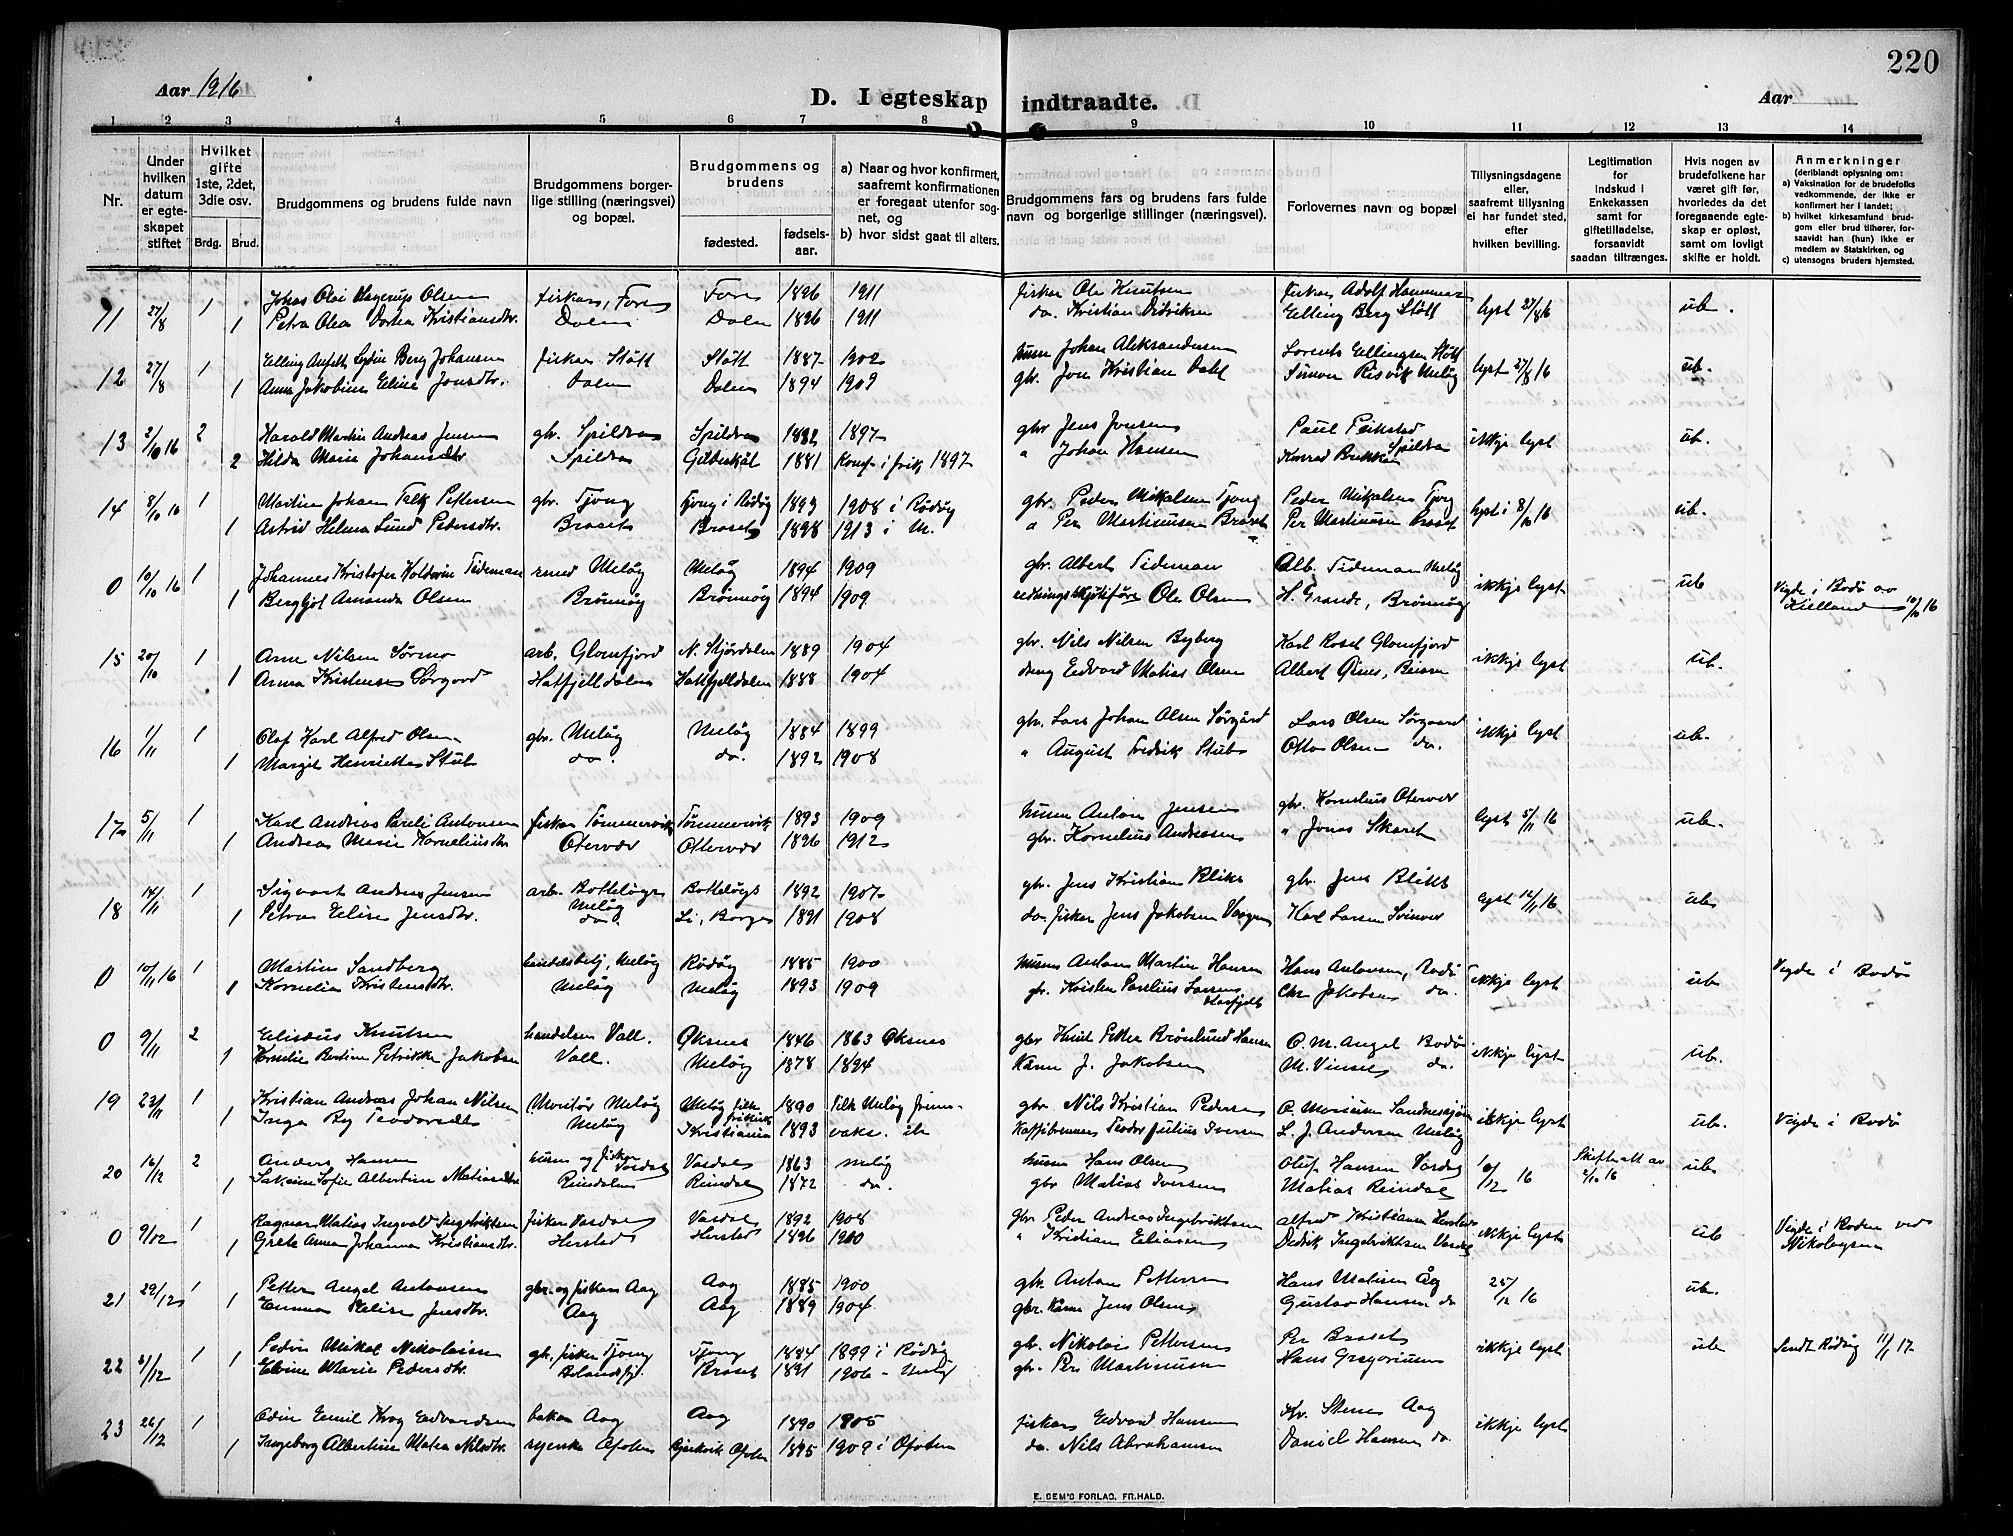 220
Aar 1916
D. I egteskap indtraadte.
Aar
1 2 3 4 5 6 7 8 9 10 11 12 13 14
Nr.
Under hvilken datum er egteskapet stiftet
Hvilket gifte 1ste, 2det, 3die osv.
Brdg. Brud.
Brudgommens og brudens fulde navn
Brudgommens borgerlige stilling (næringsvei) og bopæl.
Brudgommens og brudens
fødested. fødselsaar.
a) Naar og hvor konfirmert, saafremt konfirmationen er foregaat utenfor sognet, og
b) hvor sidst gaat til alters.
Brudgommens fars og brudens fars fulde navn og borgerlige stillinger (næringsvei).
Forlovernes navn og bopæl
Tillysningsdagene eller, saafremt tillysning ei har fundet sted, efter hvilken bevilling.
Legitimation for indskud i Enkekassen samt for giftetilladelse, forsaavidt saadan tiltrænges.
Hvis nogen av brudefolkene har været gift før, hvorledes da det foregaaende egteskap er opløst, samt om lovligt skifte er holdt.
Anmerkninger (deriblandt oplysning om:
a) Vaksination for de brudefolks vedkommende, der ikke er konfirmert her i landet;
b) hvilket kirkesamfund brudgom eller brud tilhører, forsaavidt han (hun) ikke er medlem av Statskirken, og
c) utensogns bruders hjemsted.
11 27/8 1 Johas Olai Hagerup Olsen fiskar, Fore Fore 1896 1911 fiskar Ole Knutsen fiskar Adolf Hammer lyst 27/8 16 ub.
1 Petra Olea Dorthea Kristiansdtr. Dalen Dalen 1896 1911 do. Kristian Didriksen Elling Berg Støtt
12 27/8 1 Elling Anfelt Lydin Berg Johansen fiskar Støtt Støtt 1887 1902 husm Johan Aleksandersen Lorents Ellingsen Støtt lyst 27/8 16 ub.
1 Anna Jakobine Eline Jonsdtr. Dalen Dalen 1894 1909 gbr. Jon Kristian Dahl Simon Risvik Meløy
13 2/10 16 2 Harald Martin Andreas Jensen gbr. Spildra Spildra 1882 1897 gbr Jens Jensen Paul Peikstad ikkje lyst ub.
2 Hilda Marie Johansdtr Spildra Gildeskål 1881 Konf. i 1897 " Johan Hansen Konrad Brekke Spildra
14 8/10 16 1 Martin Johan Falk Pettersen gbr. Tjong Tjong i Rødøy 1893 1908 i Rødøy gbr. Peder Mikalsen Tjong Peder Mikalsen Tjong lyst i 8/10 16 ub.
1 Astrid Helma Lund Pedersdtr. Braset Braset 1898 1913 i M. " Per Martinusen Braset Per Martinusen Braset
0 10/10 16 1 Johannes Kristofer Tideman Meløy Meløy 1894 1909 gbr. Albert Tideman Alb. Tideman Meløy ikkje lyst ub Vigde i Bodø av
1 Bergljot Amanda Olsen Brønnøy Brønnøy 1894 1909 Ole Olsen H. Grande, Brønnøy Kielland 10/10 16
15 20/10 1 Arne Nilsen Sørmo arb. Glomfjord N. Stjördalen 1889 1904 gbr. Nils Nilsen Byberg Karl Rosel Glomfjord ikkje lyst ub.
1 Anna Kristense Sørgård Hatfjelldalen Hatfjelldalen 1888 1904 Edvard Matias Olsen Albert Osnes, Beiarn
16 1/11 1 Olaf Karl Alfred Olsen gbr. Meløy Meløy 1884 1899 gbr. Lars Johan Olsen Sørgård Lars Olsen Sørgaard ikkje lyst ub.
1 Margit Henriette Stub do. do. 1892 1908 " August Fredrik Stub Otto Olsen do.
17 5/11 1 Karl Andreas Pareli Antonsen fiskar Tømmervik Tømmervik 1893 1909 husm Anton Jensen gbr. Kornelius Otervær lyst 5/11 16 ub.
1 Andrea Marie Korneliusdtr Otervær Ottervær 1896 1912 gbr. Kornelius Andreasen " Jonas Skaret
18 14/11 1 Sigvart Andreas Jensen arb. Bolleløys Meløy Bolleløys 1892 1907 gbr. Jens Kristian Bliks gbr. Jens Bliks lyst 12/11 16 ub
1 Petra Elise Jensdtr. do. Li, Borges 1891 1908 do. fiskar Jens Jakobsen Karl Larsen Svinvær
0 10/11 16 1 Martin Sandberg handelsbetj, Meløy Rødøy 1885 1900 husm Anton Martin Hansen Hans Antonsen, Bodø ikkje lyst ub Vigde i Bodø
1 Kornelia Kristensdtr. Meløy Meløy 1893 1909 gbr. Kristen Parelius Larsen Chr Jakobsen do.
0 9/11 2 Elisæus Knutsen handelsm Vall. Øksnes 1846 1863 Øksnes gbr Knut Petter Brønlund Hansen O. M. Angel Bodø ikkje lyst ub.
1 Kornelie Bertine Petrikke Jakobsen Vall. Meløy 1878 1894 J. Jakobsen M. Vinsæ do.
19 23/11 1 Kristian Andreas Johan Nilsen Montør Meløy Meløy 1890 Meløy gbr Nils Kristian Pedersen O. Morisen ikkje lyst ub. Vigde i Bodø
1 Inga By Teodorsdtr Meløy Kristiania 1893 vaks. Kaffibrennar Teodor Julius Iversen L. J. Andersen Meløy
20 16/12 2 Anders Hansen husm og fisker Vasdal Vasdal 1863 Meløy husm Hans Olsen Oluf Hansen Vasdal 10/12 16 Skifteatt av 2/10 16 ub
1 Sofie Albertine Matiasdtr Reindalen Reindal 1872 do. gbr Matias Iversen Matias Reindal
0 9/12 1 Ragnar Matias Ingvald Ingebriktsen fiskar Vasdal Vasdal 1892 1908 gbr Peder Andreas Ingebriktsen Alfred Kristiansen Herstad ikkje lyst ub Vigde i Boden ved
1 Grete Anna Johanna Kristiansdtr. Herstad Herstad 1896 1910 " Kristian Eliassen Didrik Ingebriktsen Vasdal Nikolaysen
21 29/12 1 Petter Angel Antonsen gbr. og fiskar Aag Aag 1885 1900 gbr. Anton Pettersen Hans Matisen Åg 25/12 16 ub.
1 Emma Elise Jensdtr. Aag Aag 1889 1904 gbr. Jens Olsen Gustav Hansen do
22 /12 1 Peder Mikal Nikolaisen gbr, fisker Tjong Tjong 1884 1899 i Rødøy gbr. Nikolai Pettersen Per Braset ikkje lyst ub Sendt Rødøy 11/1 17
1 Elvine Marie Pedersdtr. Braset 1891 1906 - Meløy gbr. Per Martinusen Hans Gregoriusen
23 26/12 1 Odin Emil Krog Edvardsen bakar Aag Aag 1890 1905 fiskar Edvard Hansen Kr. Stenes Aag ikkje lyst
1 Ingeborg Albertine Matea Nilsdtr. Ofoten Ofoten 1895 1909 i Ofoten do. Nils Abrahamsen Daniel Hansen do
E. SEM'S FORLAG, FR.HALD.